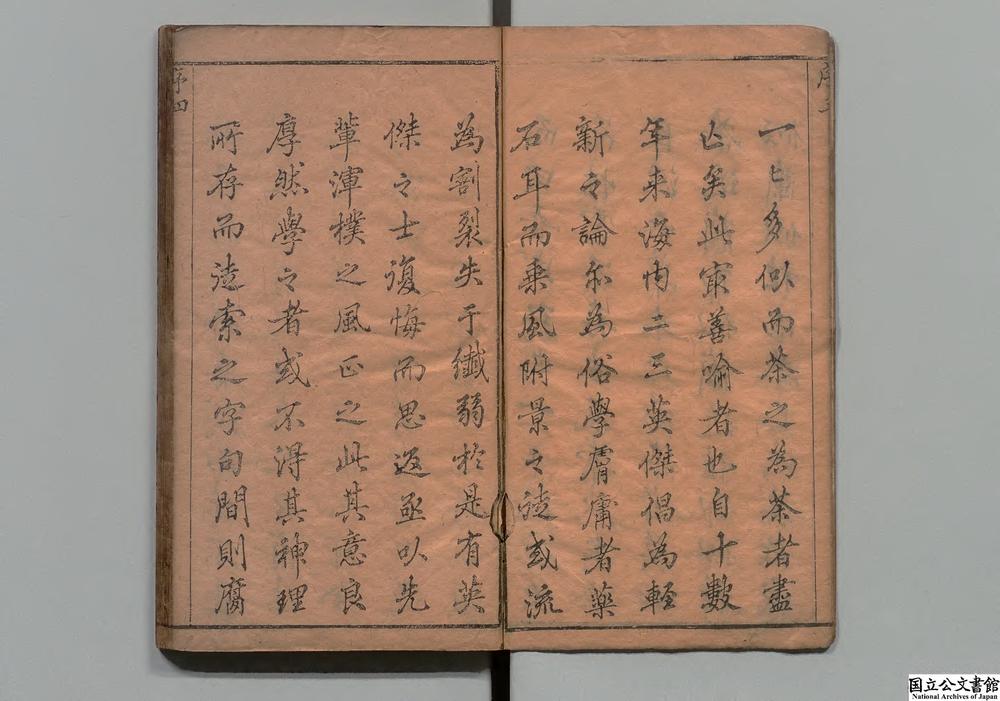 序三
一〻多似而茶之為茶者盡
亾矣此㝡善喻者也自十數
年来海内二三英傑倡為軽
新之論尔為俗學膚庸者薬
石耳而乗風附景之徒或流
為割裂失于纎弱於是有英
傑之士復悔而思返亟以先
軰渾樸之風正之此其意良
厚然學之者或不得其神理
所存而徒索之字句間則腐
序四
国立公文書館
National Archives of Japan